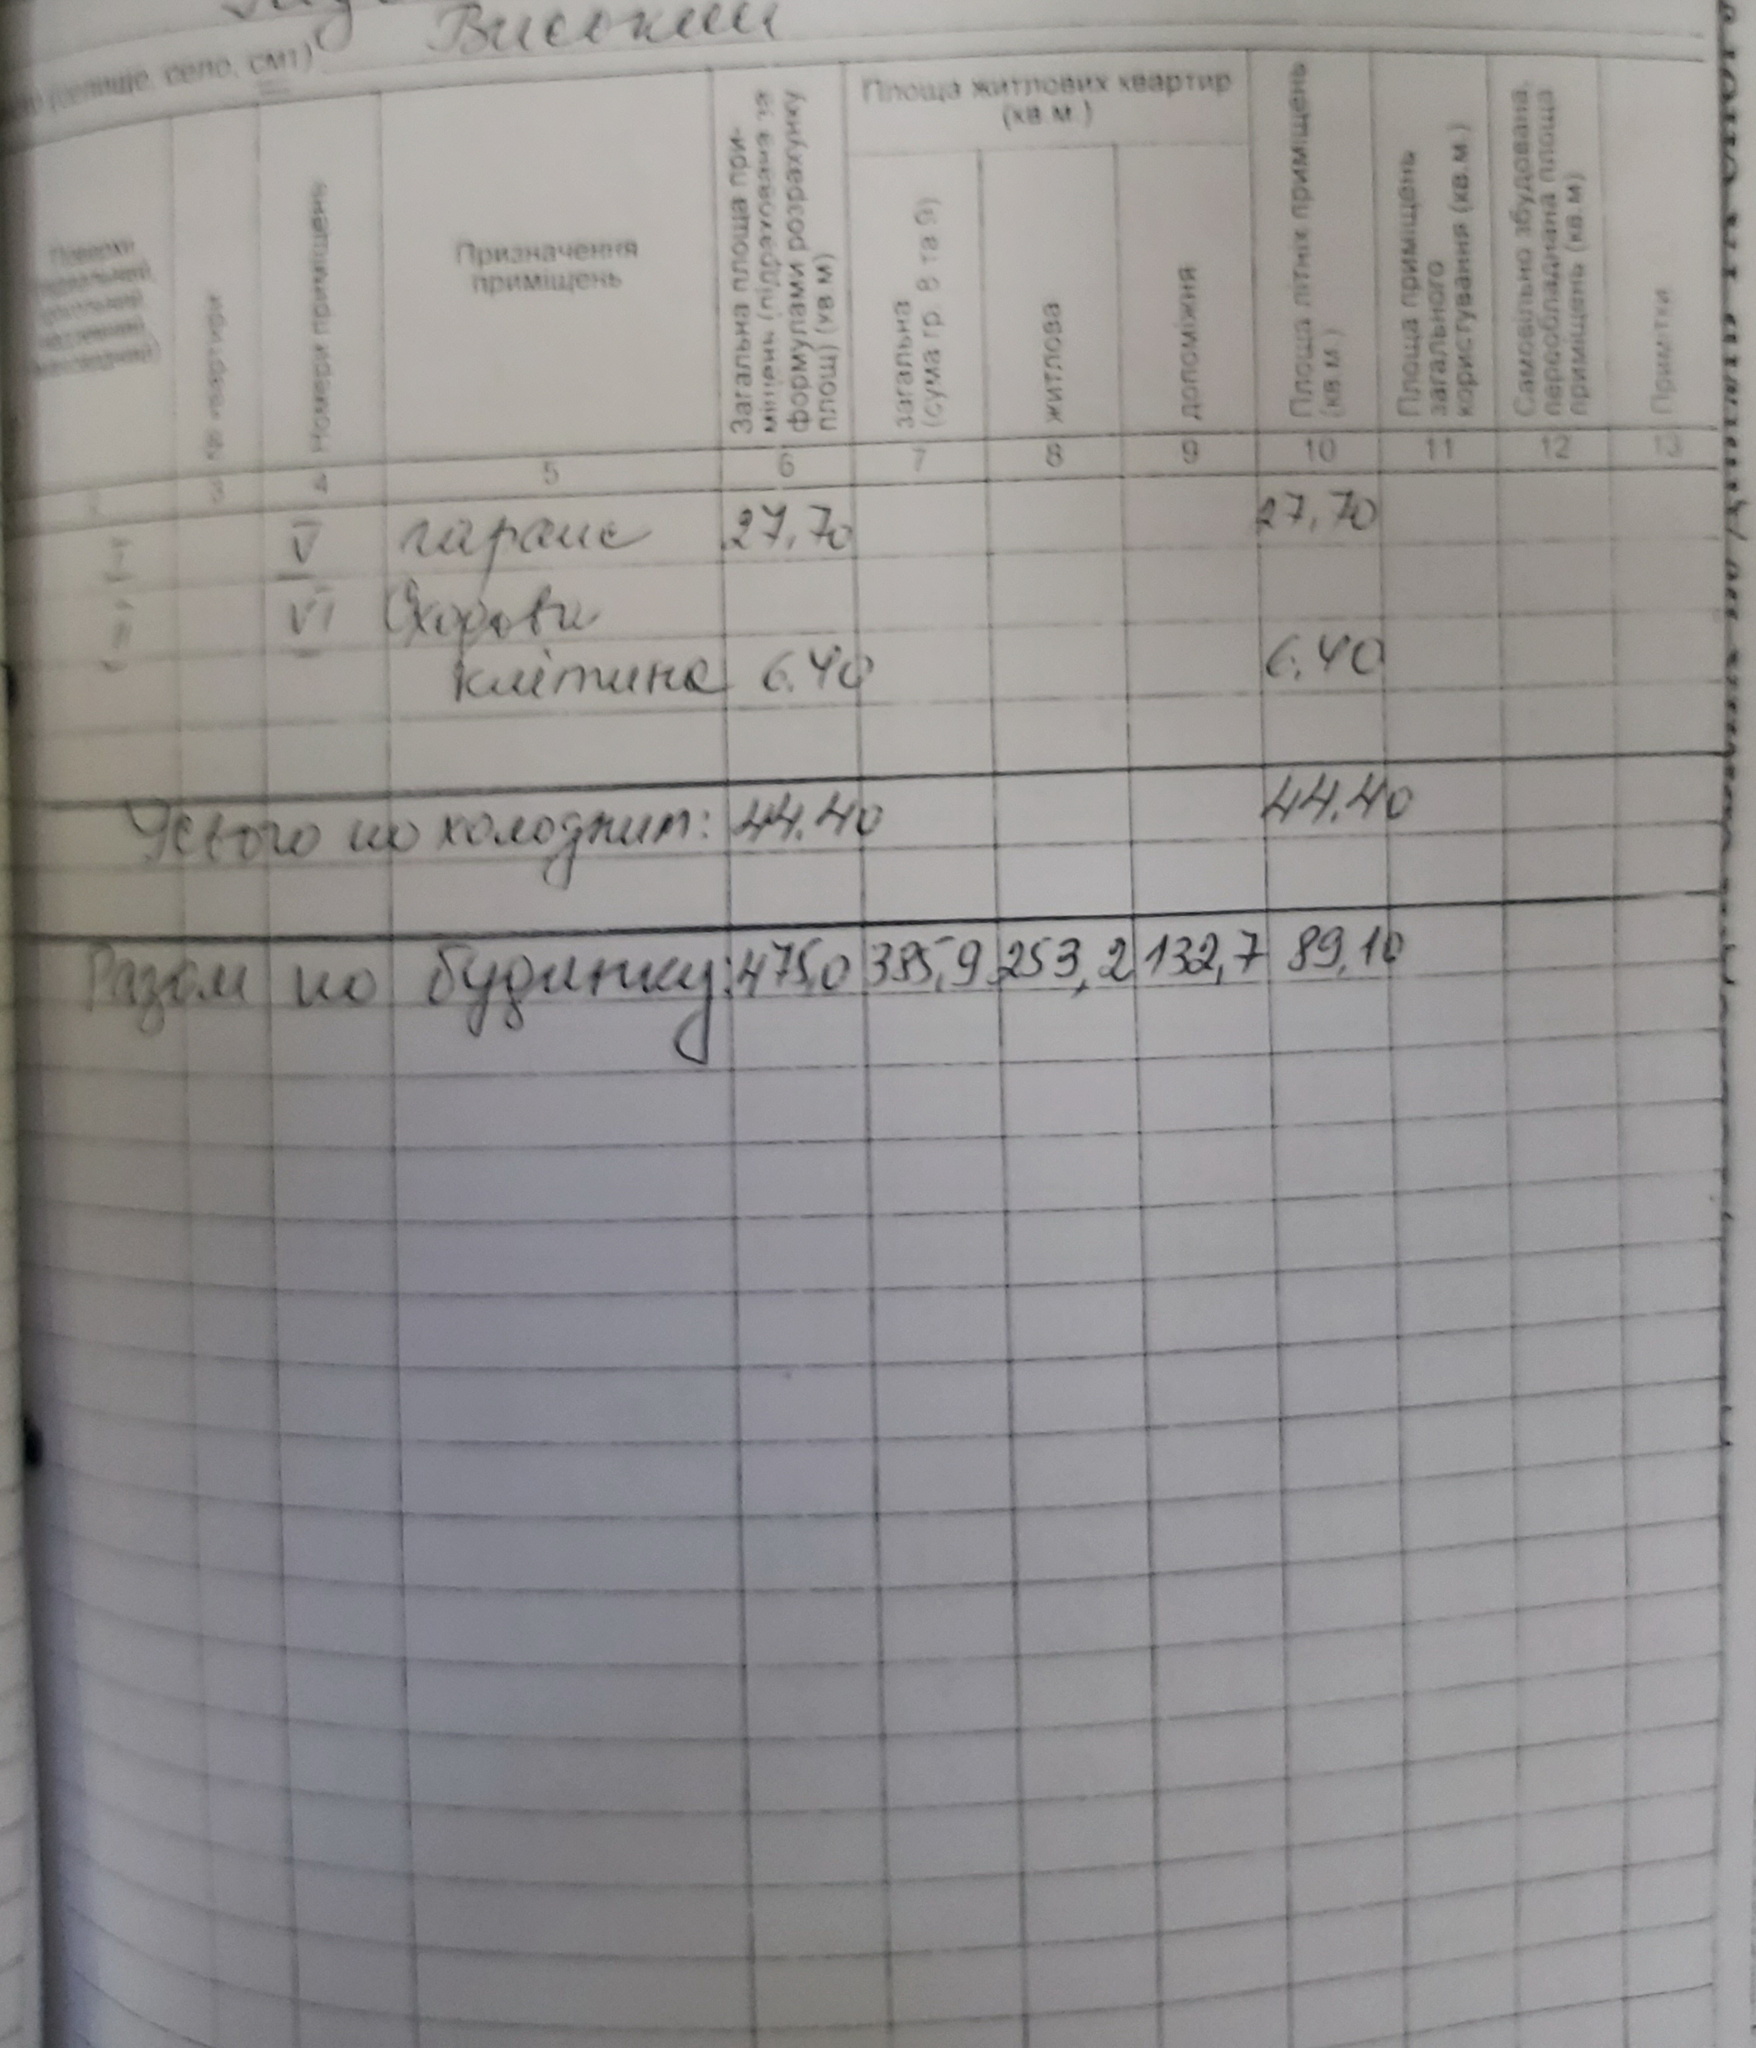 Високий
(селище, село, смт)
Поверхи
Номери приміщень
Призначення
приміщень
Загальна площа при-
міщень (підрахована за
формулами розрахунку
площ) (кв.м)
Площа житлових квартир
(кв.м.)
загальна
(сума гр. 8 та 9)
житлова
допоміжня
Площа літніх приміщень
(кв.м.)
Площа приміщень
загального
користування (кв.м.)
Самовільно збудована,
переобладнана площа
приміщень (кв.м)
Примітки
5 6 7 8 9 10 11 12 13
I V гараж 27,70 27,70
VI Сходова
клітина 6.40 6.40
Усього по холодним: 44.40 44.40
Разом по будинку: 475,0 385,9 253,2 132,7 89,10